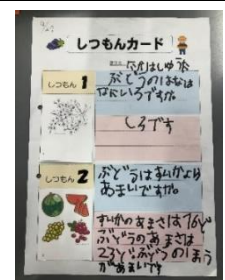 しつもんカード
しつもん 1
ぶどうのはなは
なにいろですか。
しろです
しつもん 2
ぶどうはすいかより
あまいですか。
すいかのあまさは
ぶどうのあまさは
23どぶどうのほう
があまいです